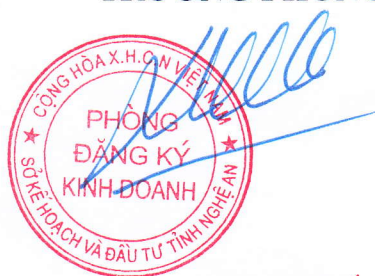 CỘNG HÒA X.H.C.N VIỆT NAM
PHÒNG
ĐĂNG KÝ
KINH DOANH
SỞ KẾ HOẠCH VÀ ĐẦU TƯ TỈNH NGHỆ AN